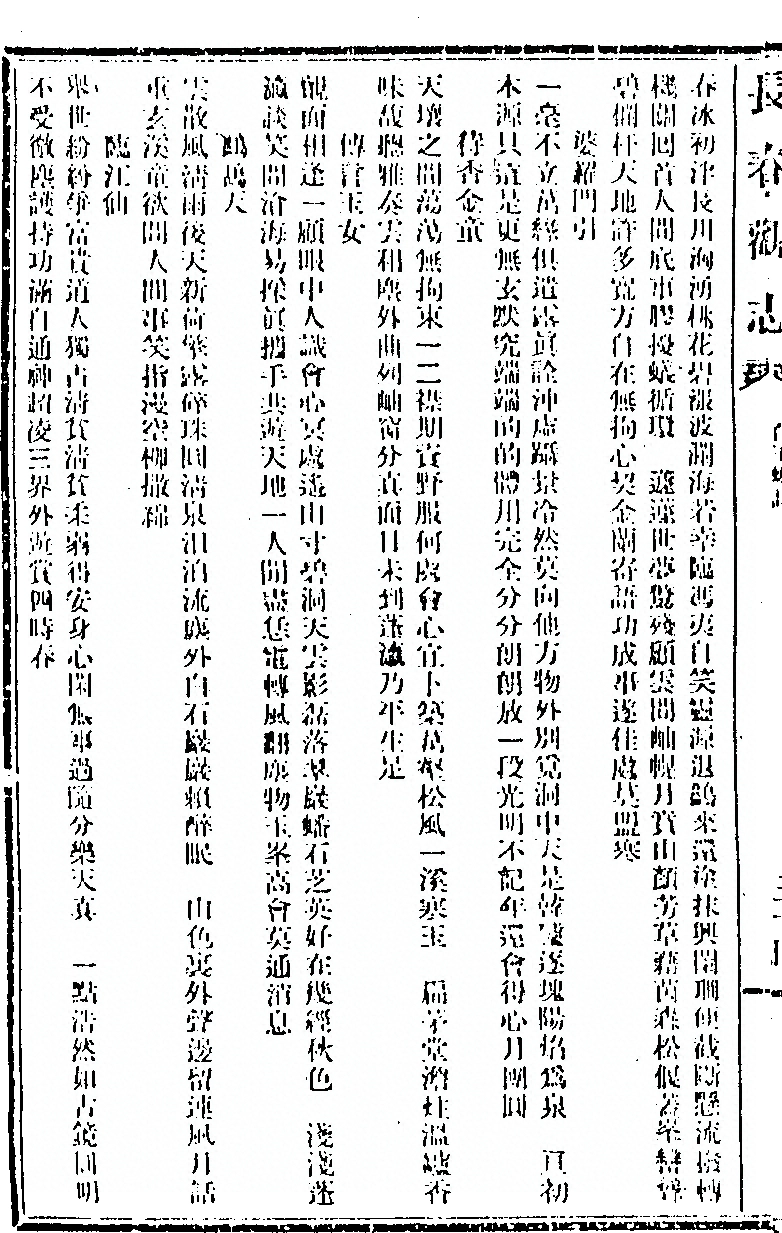 長春觀志 卷
春冰初泮長川洶湧桃花碧漲波瀾海若幸臨馮夷自笑還源退鷁來還塗抹興闌珊便截斷懸流撥轉
機關回首人間底事膠擾蟻循環　蘧蘧世夢驚殘願雲閒岫幌月賞山顏芳草藉茵森松偃蓋
碧欄杆天地許多寬方自在無拘心契金蘭寄語功成事遂佳處莫盟寒
婆羅門引
一毫不立萬緣俱遣露眞詮沖虛躡景冷然莫向他方物外別覓洞中天是韓盧逐塊陽焰爲泉　直初
本源只這是更無玄默究端端的的體用完全分分朗朗放一段光明不記年還會得心月團圓
侍香金童
天壤之間蕩蕩無拘束一二襟期資野服何處會心宜卜築萬壑松風一溪寒玉　扁茅堂澹灶溫爐香
味馥聽雅奏雲和塵外曲列岫窗分眞面目未到蓬瀛乃平生足
傳言玉女
覿面相逢一顧眼中人識會心冥處遙山寸碧洞天雲影磊落翠巖蟠石芝英好在幾經秋色　淺淺蓬
瀛談笑間滄海易探眞攜手共遊天地一人閒盡恁電轉風翻塵物玉峯高會莫通消息
鷓鴣天
雲散風清雨後天新荷擎露碎珠圓清泉汨汨流塵外白石巖巖賴醉眠　山色裏外聲邊留連風月話
重玄溪童欲問人間事笑指漫空柳撒綿
臨江仙
舉世紛紛爭富貴道人獨占清貧清貧柔弱得安身心閑無事過隨分樂天真　一點浩然如古鏡圓明
不受微塵護持功滿自通神超凌三界外遊賞四時春